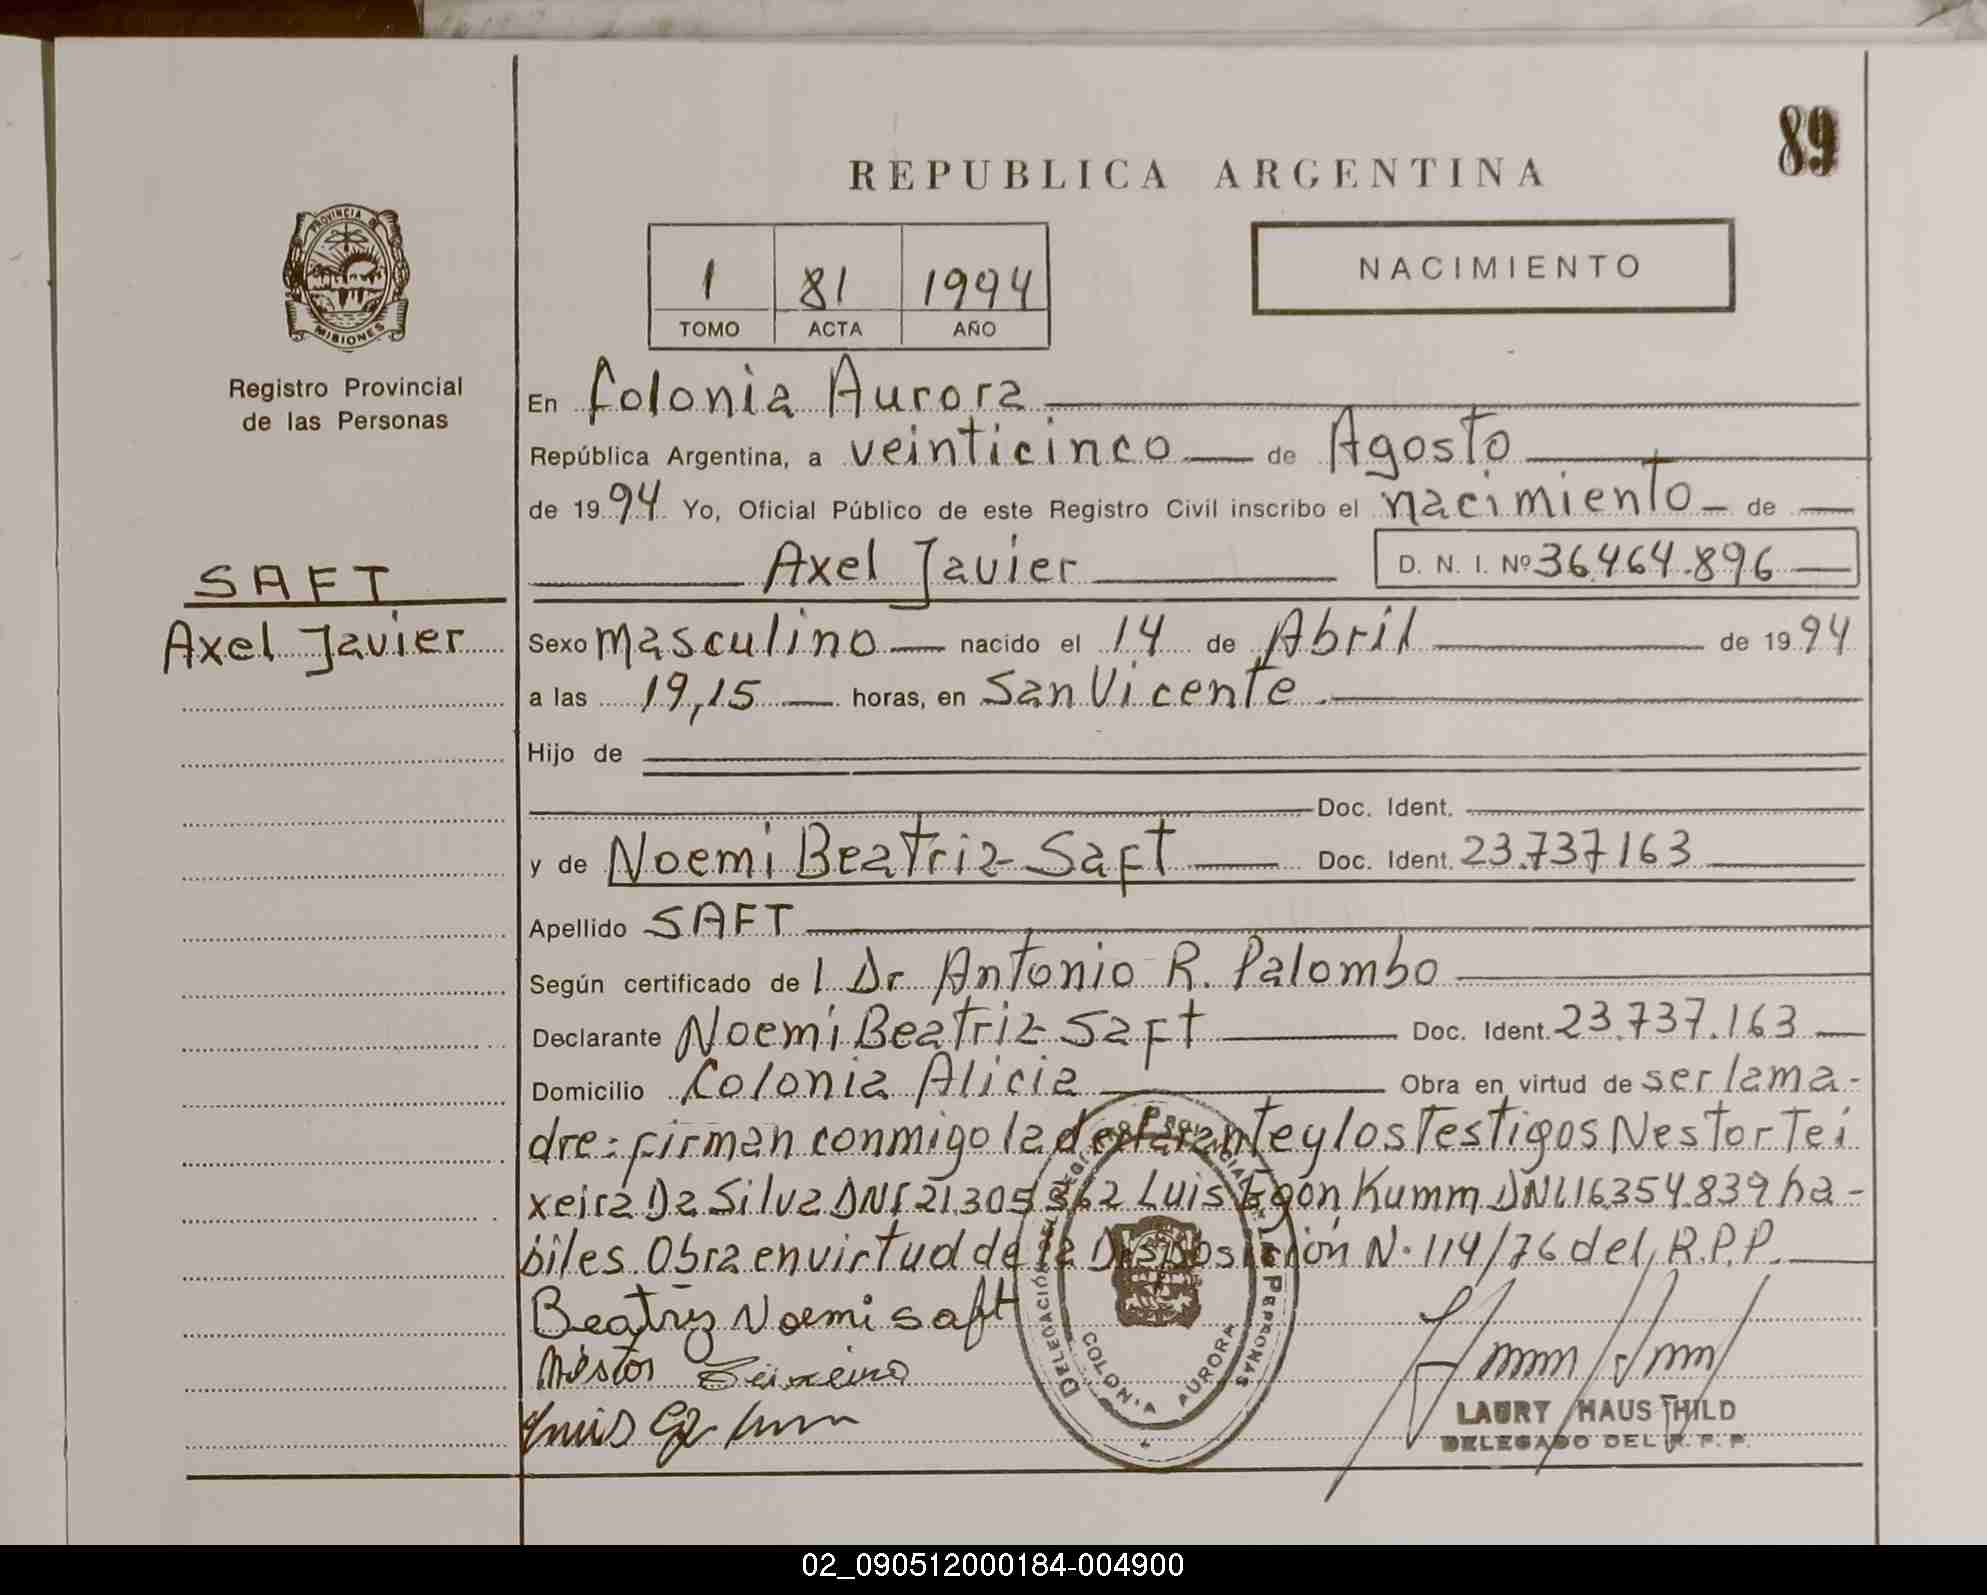 89
REPUBLICA ARGENTINA
PROVINCIA DE
MISIONES
Registro Provincial
de las Personas
1 81 1994
TOMO ACTA AÑO
NACIMIENTO
En Colonia Aurora
República Argentina, a veinticinco de Agosto
de 1994 Yo, Oficial Público de este Registro Civil inscribo el nacimiento de
Axel Javier D. N. I. Nº 36.464.896
SAFT
Axel Javier
Sexo masculino nacido el 14 de Abril de 1994
a las 19,15 horas, en San Vicente.
Hijo de
Doc. Ident.
y de Noemi Beatriz Saft Doc. Ident. 23.737163
Apellido SAFT
Según certificado de l Dr Antonio R. Palombo
Declarante Noemi Beatriz Saft Doc. Ident. 23.737.163
Domicilio Colonia Alicia Obra en virtud de ser la ma-
dre: firman conmigo la declarante y los Testigos Nestor Tei
xeira Da Silva DNI 21.305 Luis Egon Kumm DNI 16.354.839 ha-
biles. Obra en virtud de la Disposición N. 114/76 del R.P.P.
Beatriz Noemi Saft
Néstor Teixeira
Luis
DELEGACIÓN DEL REGISTRO PROVINCIAL DE LAS PERSONAS
COLONIA AURORA
LAURY HAUSTHILD
DELEGADO DEL R. P. P.
02_090512000184-004900